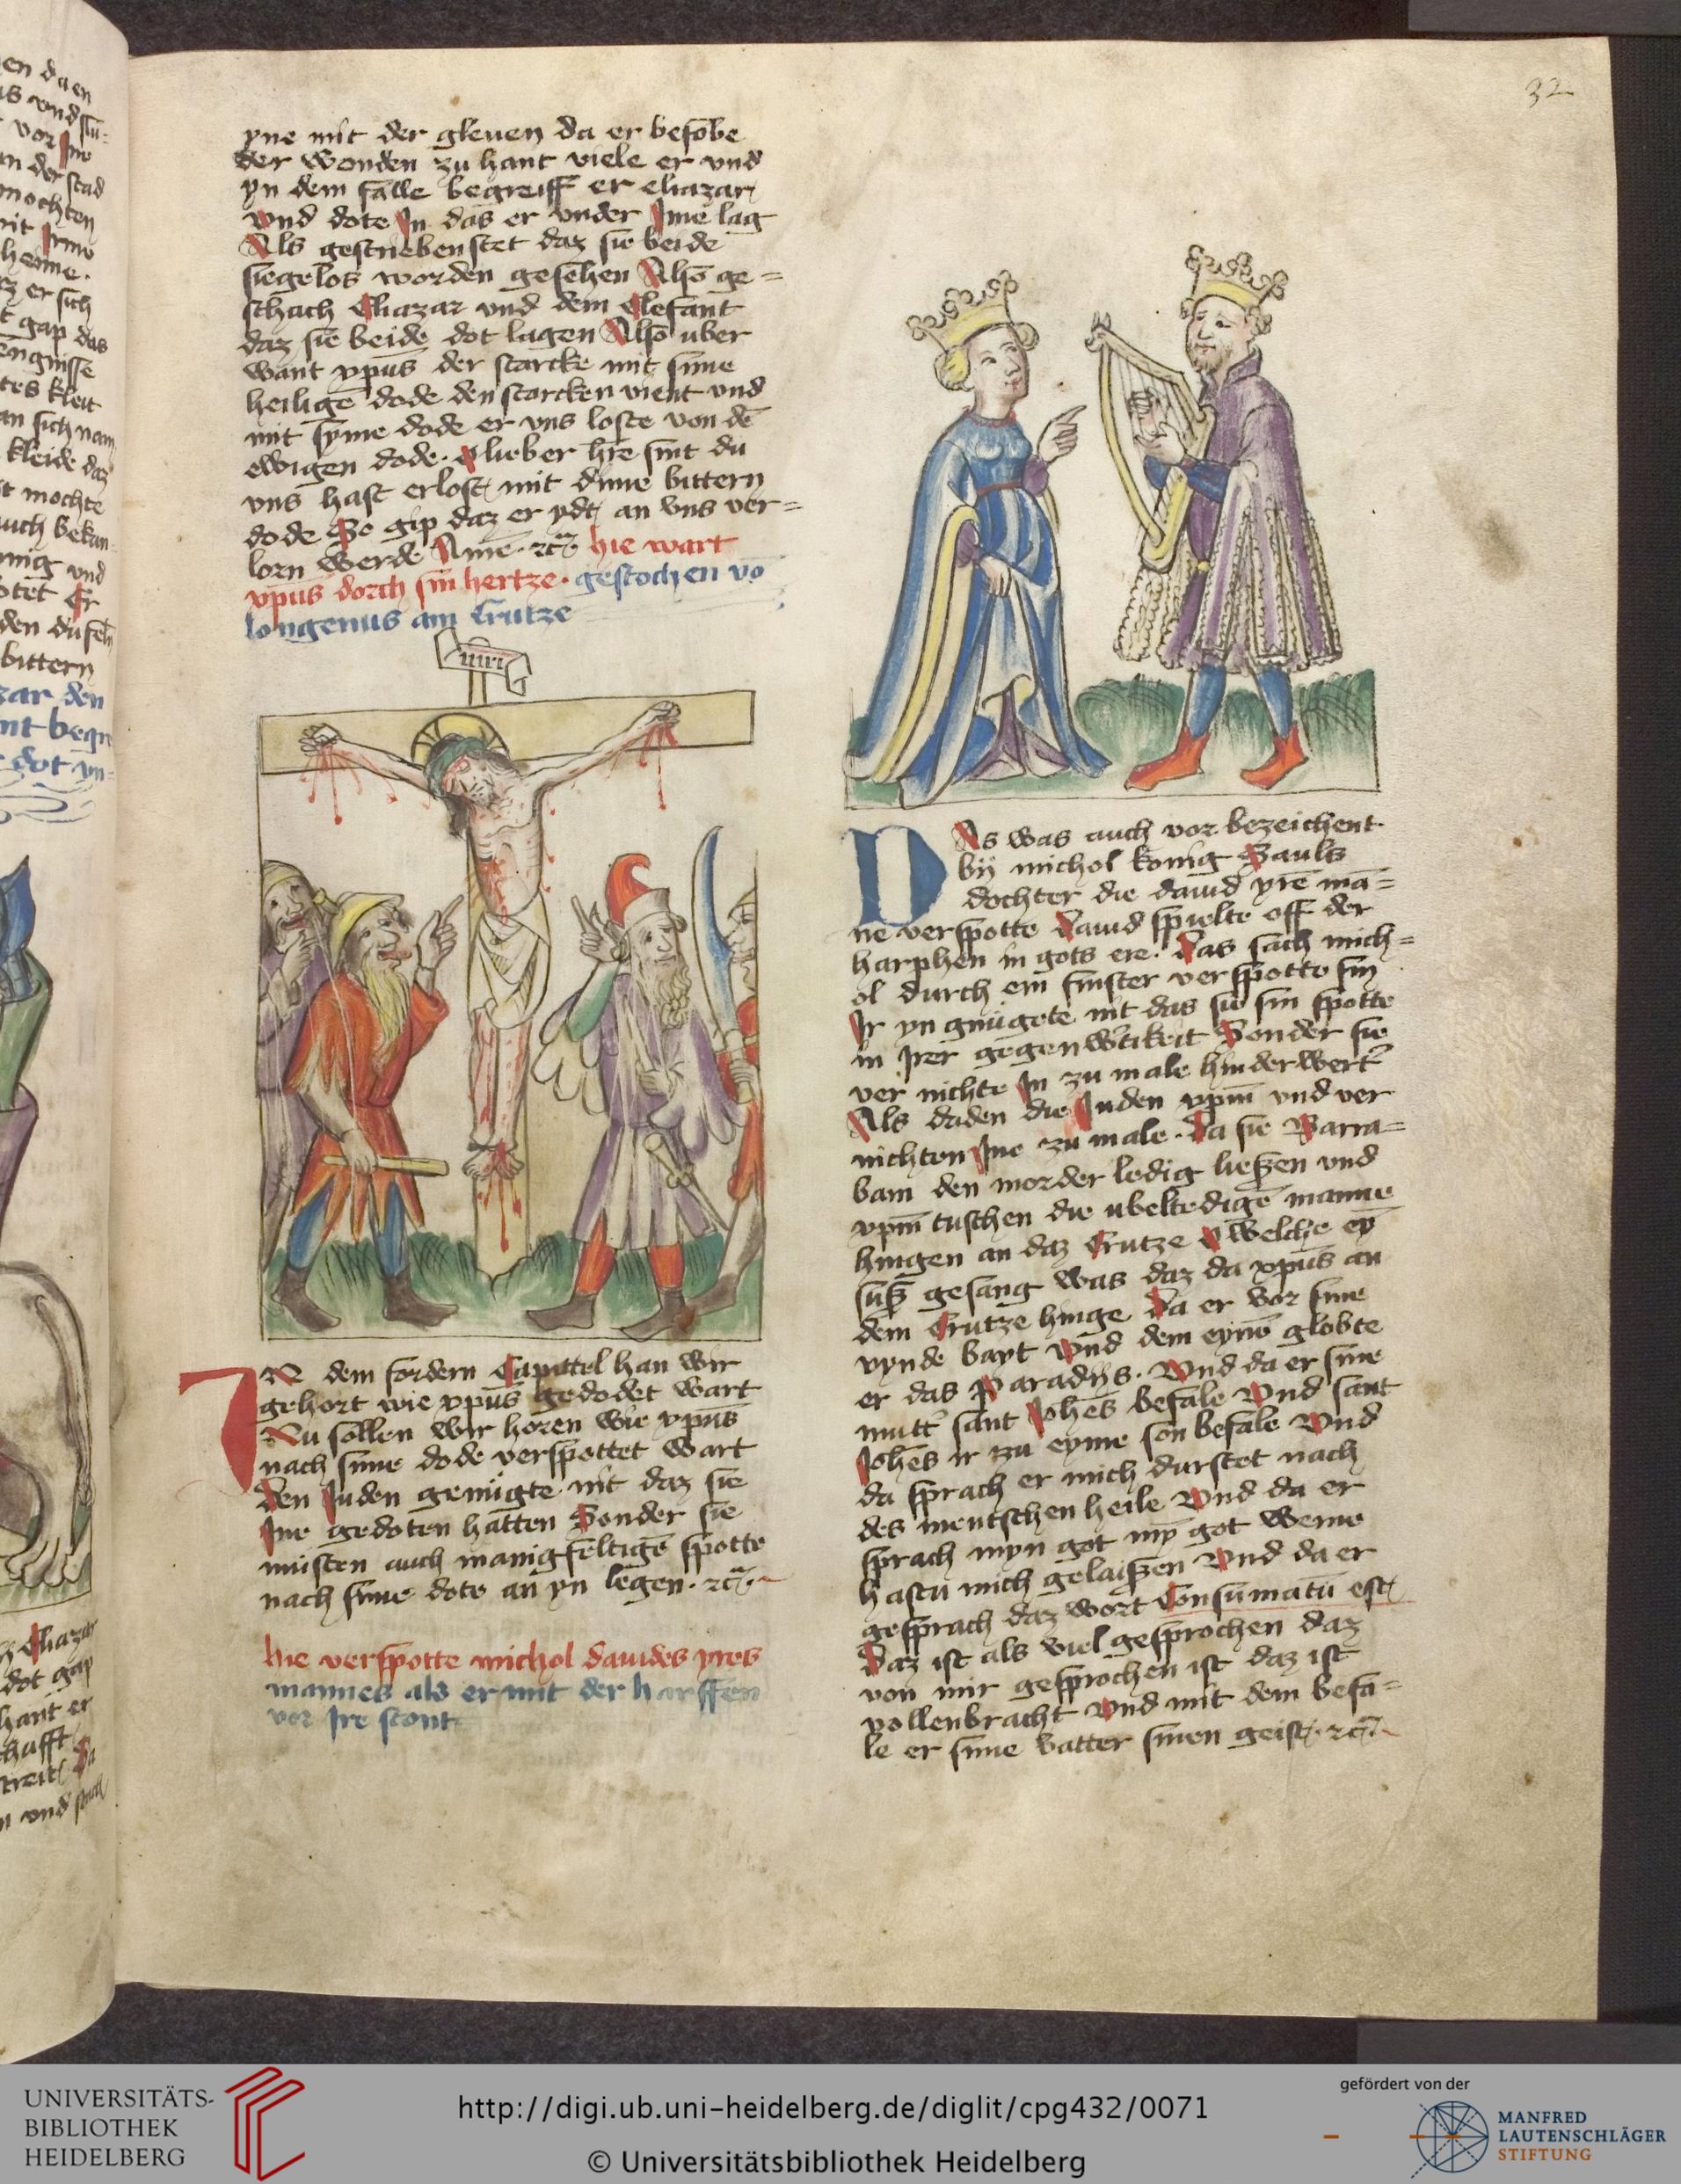 32
yne mit der gleuen da er befobe
der wonden zu hant viele er vnd
yn dem falle begreiff er eliazar
vnd dote In das er vnder Ime lag
Als gestrieben stet daz sie beide
siegelos worden gesehen Also ge=
schach Eliazar vnd dem Elefant
daz sie beide dot lagen Also uber
want xpus der starcke mit sime
heilige dode den starcken vient vnd
mit syme dode er vns loste von de
ewigen dode. O lieber hre sint du
vns hast erlost mit dime bittern
dode So gip daz er ydt an vns ver=
lorn werde Ame. rc hie wart
xpus dorch sin hertze. gestochen vo
longenus am Crutze
INRI
IN dem fordern Capittel han wir
gehort wie xpus gedodet wart
Nu sollen wir horen wie xpus
nach sime dode verspottet wart
Den Juden genugte nit daz sie
Ime gedoten hatten Sonder sie
musten auch manigfeltige spotte
nach sime dote an yn legen. rc
hie verspotte michol dauides yres
mannes als er mit der harffen
vor Ire stont
DAs was auch vor bezeichent
by michol konig Sauls
dochter die dauid yre ma=
ne verspotte Dauid spielte off der
harphen in gots ere. Das sach mich=
ol durch ein finster verspotte sin
Ir yn gnugete nit das sie sin spotte
in Irer gegenwtikeit Sonder sie
ver nichte In zu male hinderwert
Als daden die Juden xpm vnd ver
nichten Ime zu male. Da sie Barra=
bam den morder ledig lieszen vnd
xpm tuschen die ubeltedige manne
hingen an daz Crutze O welche ey
susz gesang was daz da xpus an
dem Crutze hinge Da er vor sine
vynde bayt Vnd dem eyne globte
er das Paradys. Vnd da er sine
mutt sant Johes befale Vnd sant
Johes ir zu eyme son befale Vnd
da sprach er mich durstet nach
des mentschen heile Vnd da er
sprach myn got my got weme
hastu mich gelaiszen Vnd da er
gesprach daz wort Consumatu est
Daz ist als viel gesprochen daz
von mir gesprochen ist daz ist
vollenbracht Vnd mit dem befa=
le er sime vatter sinen geist. rc
UNIVERSITÄTS-
BIBLIOTHEK
HEIDELBERG
http://digi.ub.uni-heidelberg.de/diglit/cpg432/0071
© Universitätsbibliothek Heidelberg
gefördert von der
MANFRED
LAUTENSCHLÄGER
STIFTUNG